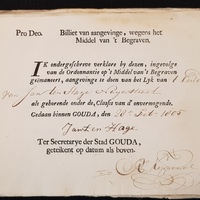 Pro Deo. Billiet van aangevinge, wegens het
Middel van 't Begraven.
IK ondergeschreve verklare by desen, ingevolge
van de Ordonnantie op 't Middel van 't Begraven
geëmaneert, aangevinge te doen van het Lyk van 't
van Jan ten Hage
als gehorende onder de, Classis van d' onvermogende.
Gedaan binnen GOUDA, den 20 Feb 1805
Jan ten Hage
Ter Secretarye der Stad GOUDA,
geteikent op datum als boven.